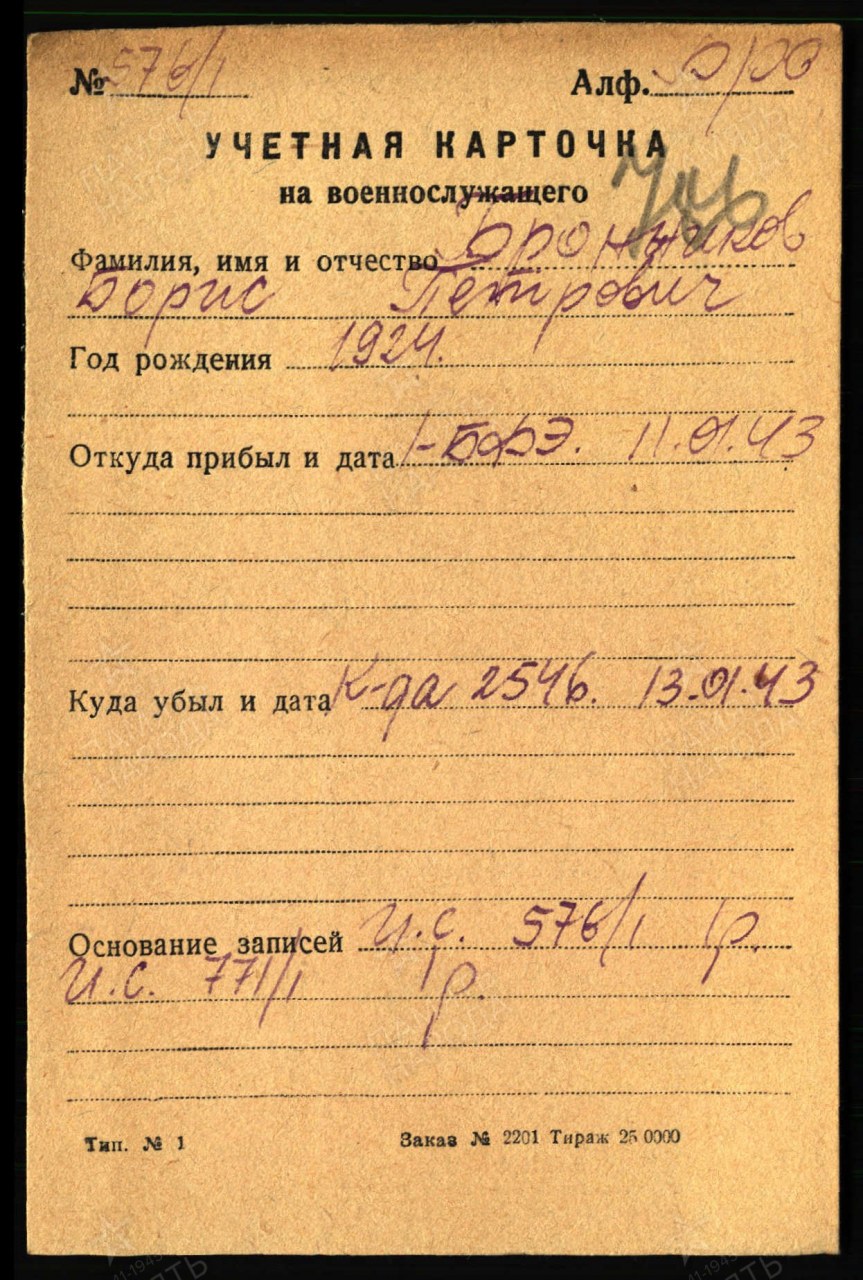 № 576/1 Алф.
УЧЕТНАЯ КАРТОЧКА
на военнослужащего
Фамилия, имя и отчество Бронников
Борис Петрович
Год рождения 1924.
Откуда прибыл и дата 1-БФЭ. 11.01.43
Куда убыл и дата К-да 2546. 13.01.43
Основание записей И.С. 576/1 р.
И.С. 771/1 р.
Тип. № 1 Заказ № 2201 Тираж 25 0000